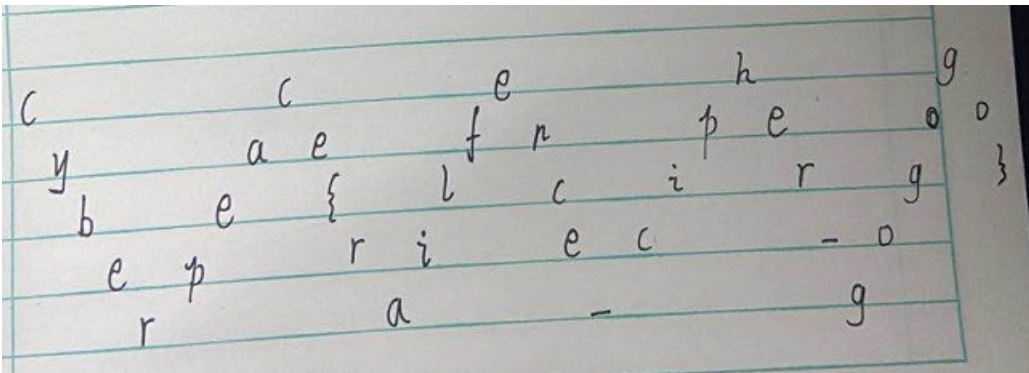 C c e h g
y a e f n p e o o
b e { l c i r g }
e p r i e c - o
r a - g